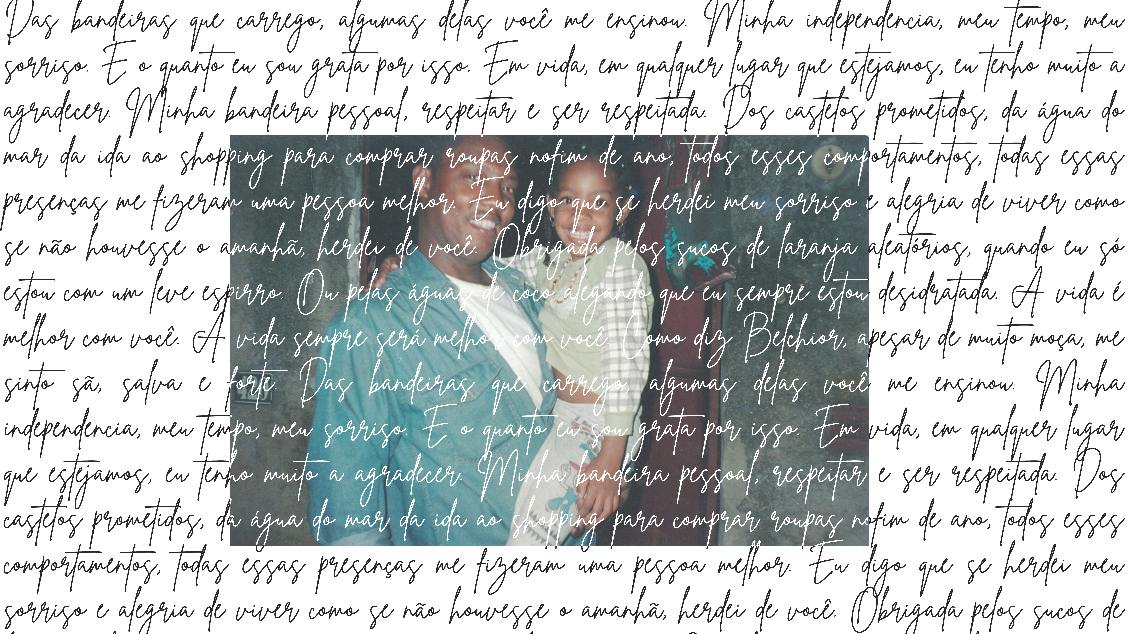 Das bandeiras que carrego, algumas delas você me ensinou. Minha independencia, meu tempo, meu
sorriso. E o quanto eu sou grata por isso. Em vida, em qualquer lugar que estejamos, eu tenho muito a
agradecer. Minha bandeira pessoal, respeitar e ser respeitada. Dos castelos prometidos, da água do
mar da ida ao shopping para comprar roupas nofim de ano, todos esses comportamentos, todas essas
presenças me fizeram uma pessoa melhor. Eu digo que se herdei meu sorriso e alegria de viver como
se não houvesse o amanhã, herdei de você. Obrigada pelos sucos de laranja aleatórios, quando eu só
estou com um leve espirro. Ou pelas águas de coco alegando que eu sempre estou desidratada. A vida é
melhor com você. A vida sempre será melhor com você. Como diz Belchior, apesar de muito moça, me
sinto sã, salva e forte. Das bandeiras que carrego, algumas delas você me ensinou. Minha
independencia, meu tempo, meu sorriso. E o quanto eu sou grata por isso. Em vida, em qualquer lugar
que estejamos, eu tenho muito a agradecer. Minha bandeira pessoal, respeitar e ser respeitada. Dos
castelos prometidos, da água do mar da ida ao shopping para comprar roupas nofim de ano, todos esses
comportamentos, todas essas presenças me fizeram uma pessoa melhor. Eu digo que se herdei meu
sorriso e alegria de viver como se não houvesse o amanhã, herdei de você. Obrigada pelos sucos de